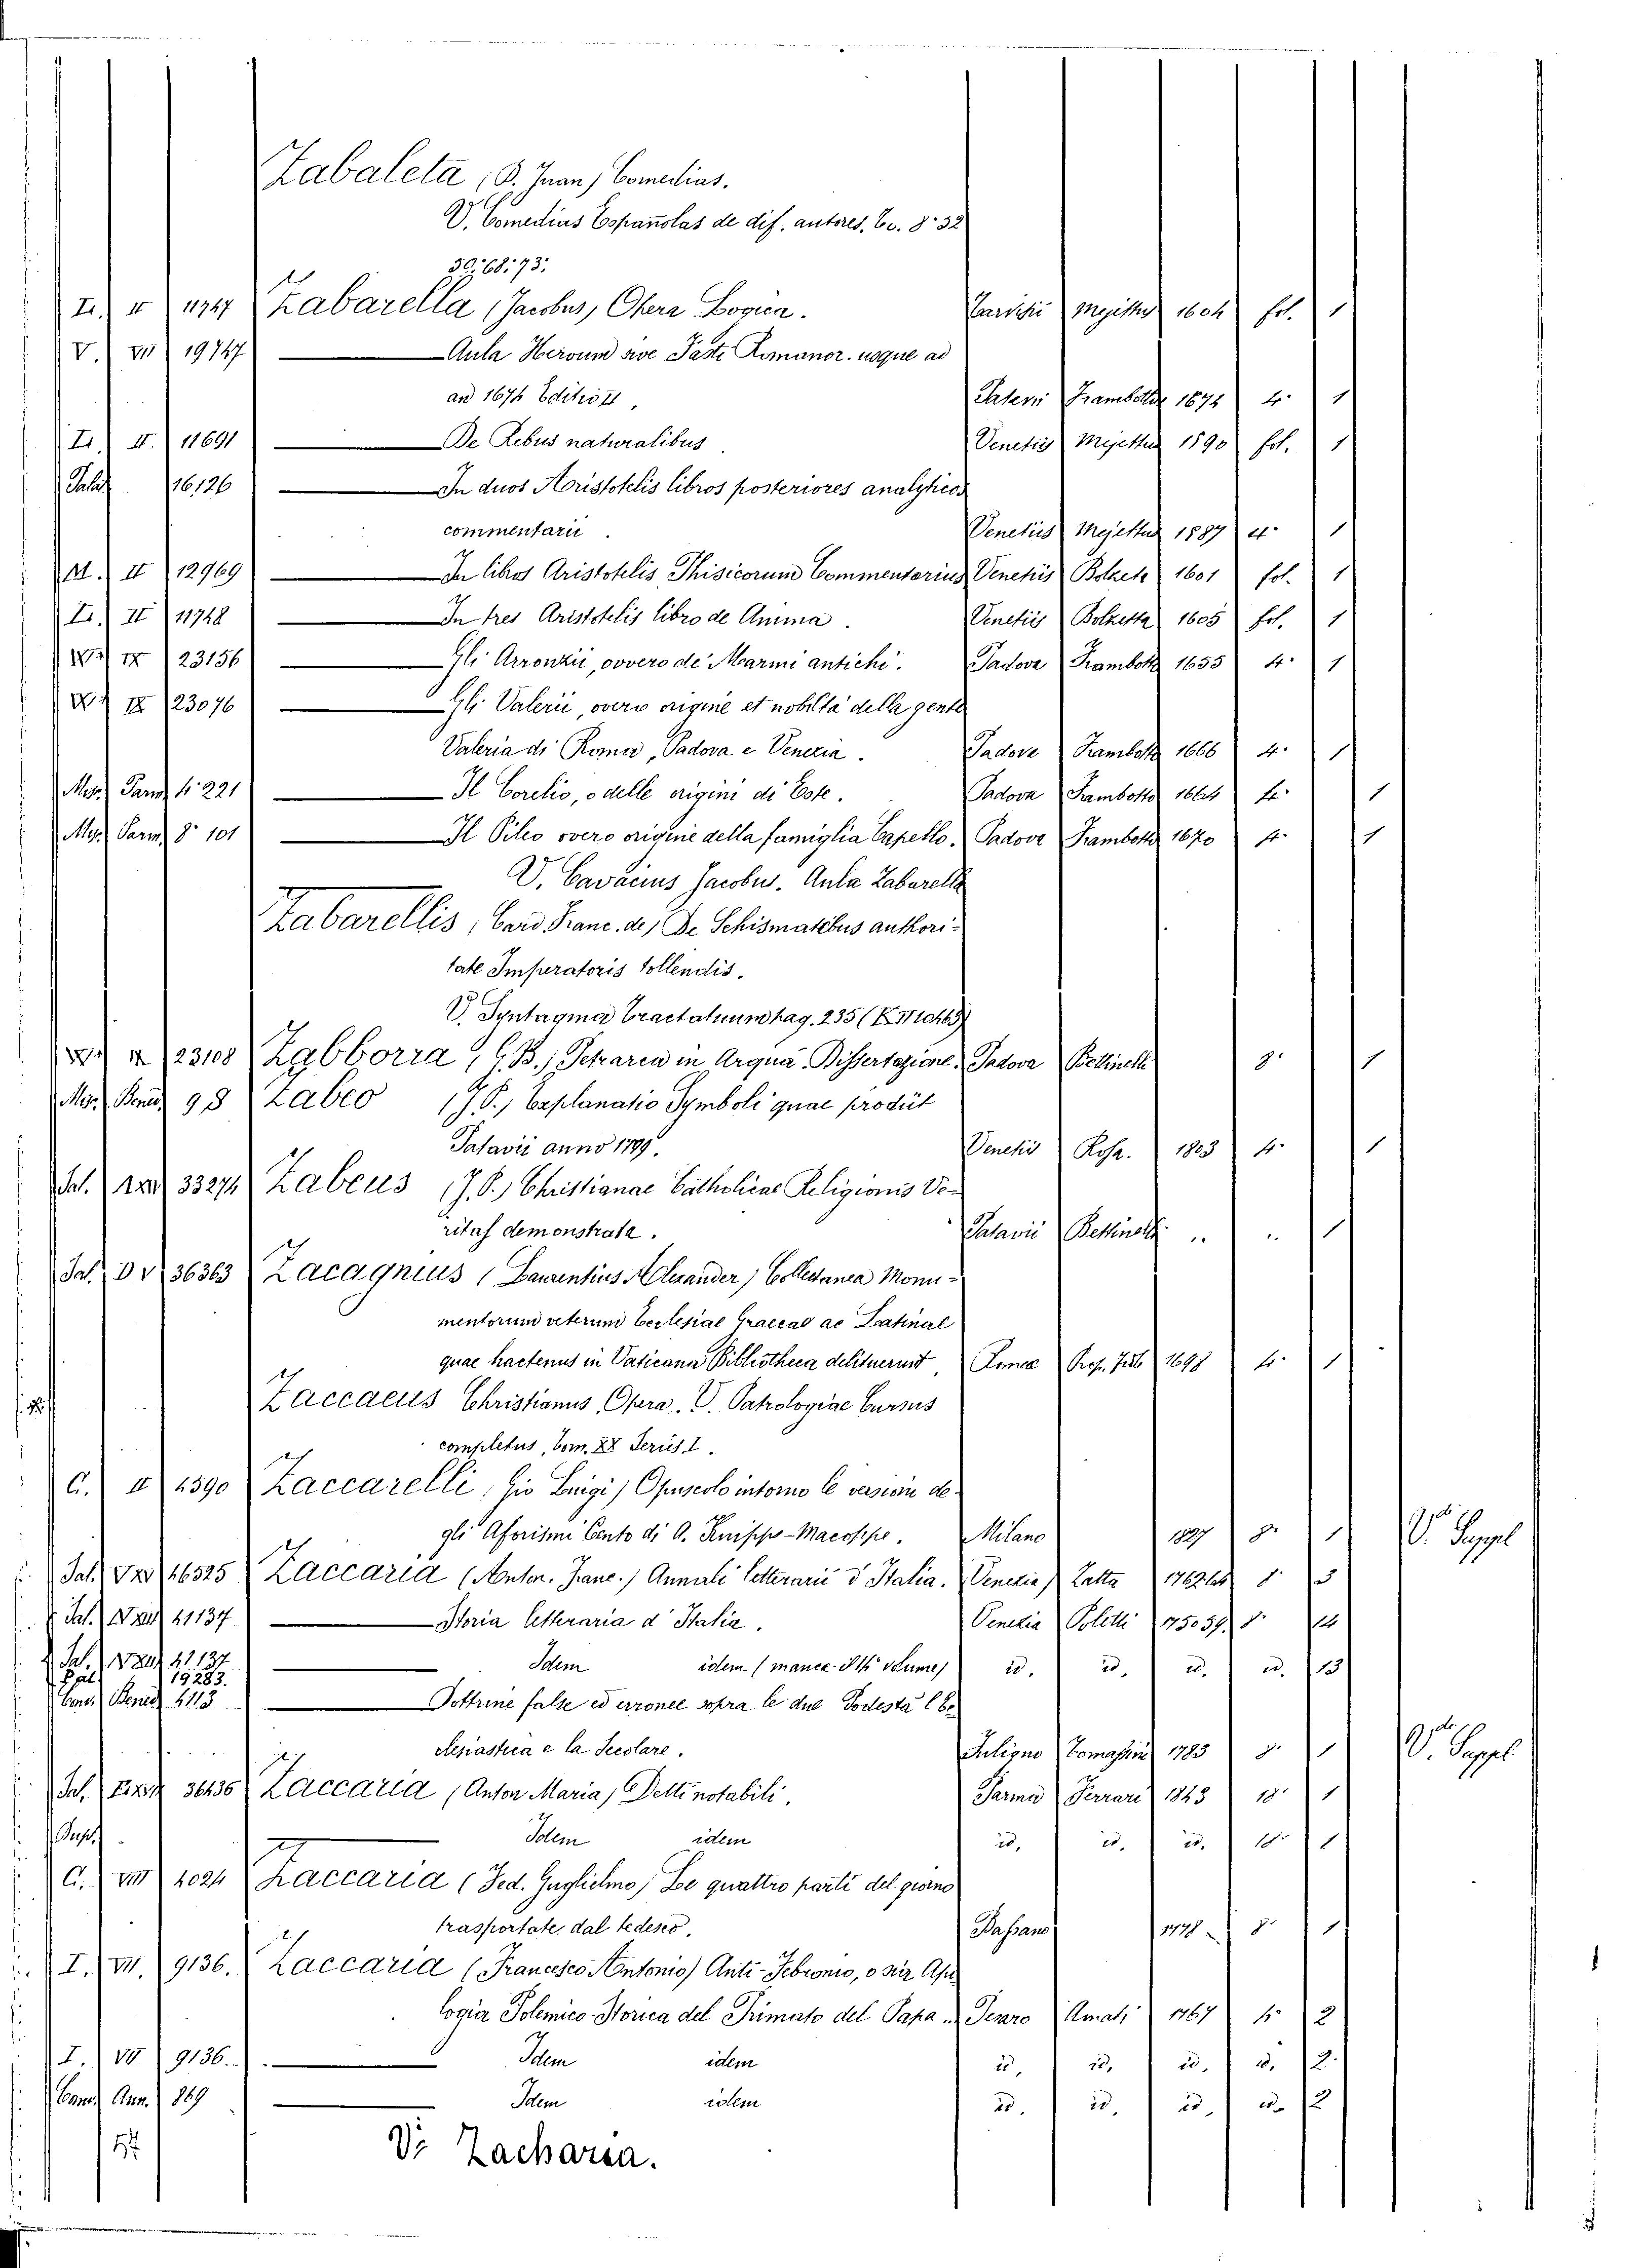 Zabaleta (D. Juan) Comedias.
V. Comedias Españolas de dif. autores. 6 v. 8° 32
30; 68; 73;
II 11747 Zabarella (Jacobus) Opera Logica. Mejettus 1604 fol. 1
V. VII 19747 — Aula Heroum sive Fasti Romanor. usque ad
an 1674 Edit. II, Patavii Frambotti 1674 4° 1
II. 11691 — De Rebus naturalibus Venetiis Mejettus 1590 fol. 1
16,126 — In duos Aristotelis libros posteriores analyticos
commentarii. Venetiis Mejettus 1587 4° 1
M. II 12969 — In libros Aristotelis Phisicorum Commentarius Venetiis Bolzeta 1601 fol. 1
II 11748 — In tres Aristotelis libro de Anima. Venetiis Bolzetta 1605 fol. 1
IX 23156 — Gli Arronzii, ovvero de' Marmi antichi. Padova Frambotti 1655 4° 1
IX 23076 — Gli Valerii, overo origine et nobiltà della gente
Valeria di Roma, Padova e Venezia. Padova Frambotti 1666 4° 1
Parm 4° 221 — Il Corelio, o delle origini di Este. Padova Frambotto 1664 4° 1
Parm. 8° 101 — Il Pileo overo origine della famiglia Capello. Padova Frambotto 1670 4° 1
V. Cavacius Jacobus. Aula Zabarella
Zabarellis, (Card. Franc. de) De Schismatibus authori-
tate Imperatoris tollendis.
V. Syntagma Tractatuum pag. 235
IX 23108 Zabborra (G. B.) Petrarca in Arquà Dissertazione. Padova Bettinelli 8° 1
98 Zabeo (J. P.) Explanatio Symboli quae prodiit
Patavii anno 1799. Venetiis Rosa. 1803 4° 1
Sal. 33274 Zabeus (J. P.) Christianae Catholicae Religionis Ve-
ritas demonstrata. Patavii Bettinelli „ „ 1
Sal. 36363 Zacagnius (Laurentius Alexander) Collectanea Monu-
mentorum veterum Ecclesiae Graecae ac Latinae
quae hactenus in Vaticana Bibliotheca delituerunt, Romae 1698 4° 1
Zaccaeus Christianus, Opera. V. Patrologiae Cursus
completus, Tom. XX Series I.
C. II 4590 Zaccarelli, Gio Luigi) Opuscolo intorno le versioni de-
gli Aforismi Cento di A. Knipps-Macoppe. Milano 1827 8° 1 V. Suppl
Sal. 46525 Zaccaria (Anton. Franc.) Annali letterarii d'Italia. Venezia Zatta 1762.64 8° 3
Sal. 41137 — Storia letteraria d'Italia. Venezia Poletti 1750.59. 8° 14
Sal. 41137 — Idem idem (manca il 14° volume) id. id. id. id. 13
19283.
4113. — Dottrine false ed erronee sopra le due Podestà l'Ec
clesiastica e la Secolare. Fuligno Tomassini 1783 8° 1 V. Suppl
Sal. 36436 Zaccaria (Anton Maria) Detti notabili. Parma Ferrari 1843 18° 1
Idem idem id. id. id. 18° 1
C. VIII 4024 Zaccaria (Fed. Guglielmo) Le quattro parti del giorno
trasportate dal tedesco. Bassano 1778 8° 1
I. VII. 9136. Zaccaria (Francesco Antonio) Anti-Febronio, o sia Apo
logia Polemico-Storica del Primato del Papa. Pesaro Amati 1767 4° 2
I. VII 9136. — Idem idem id. id. id. id. 2.
Ann. 869 — Idem idem id. id. id. id. 2
V: Zacharia.